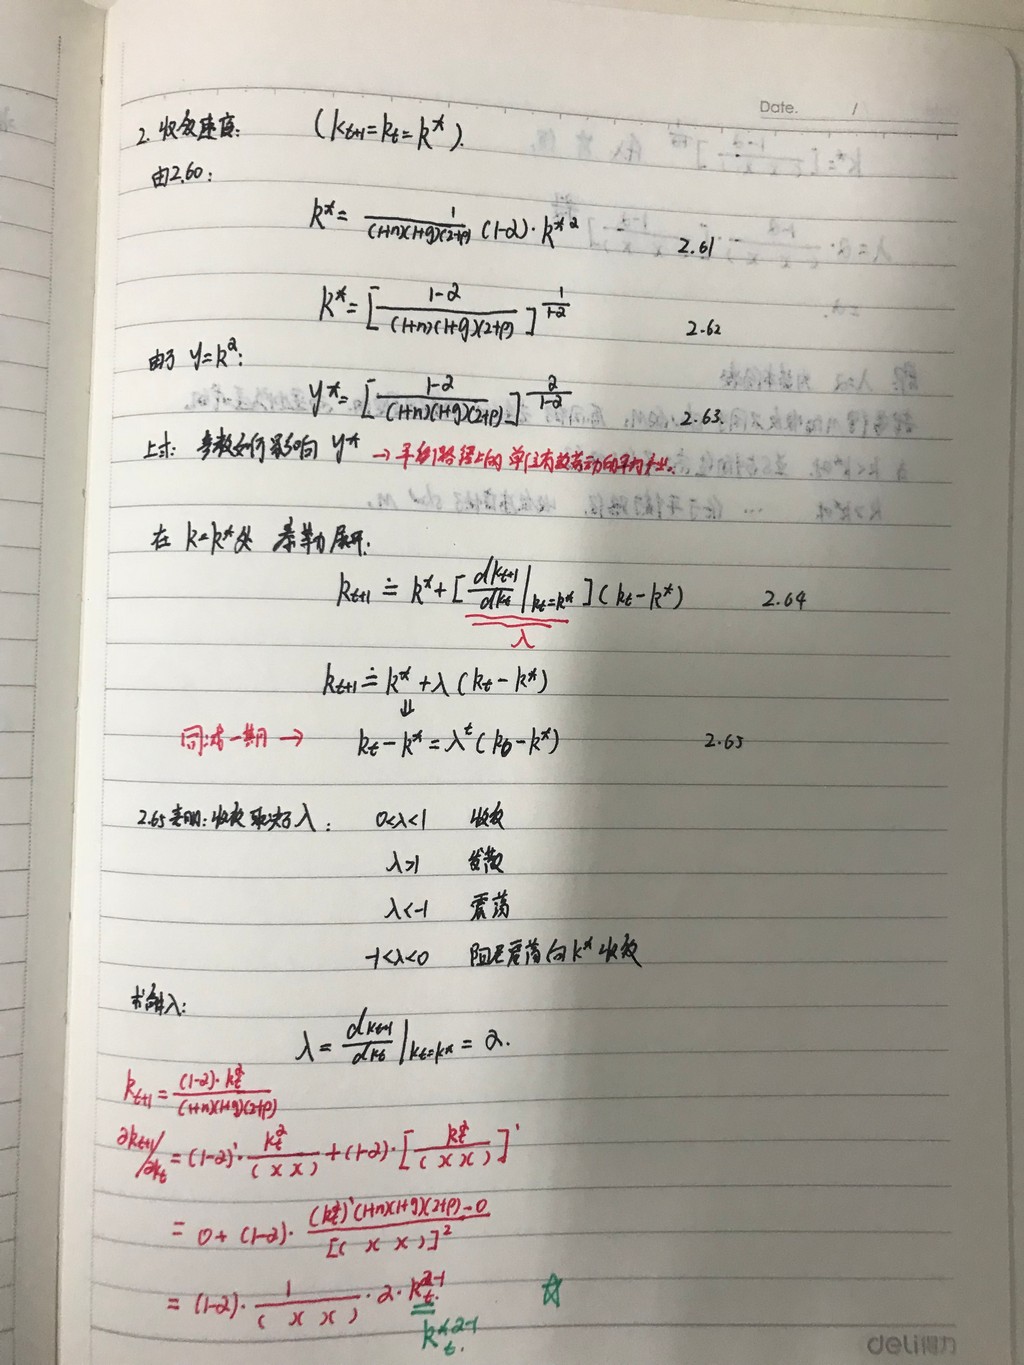 Date. /
2. 收敛速度: (k_{t+1}=k_t=k*).
由2.60:
k* = \frac{1}{(1+n)(1+g)(2+ρ)} (1-α)·k*^α 2.61
k* = [\frac{1-α}{(1+n)(1+g)(2+ρ)}]^{\frac{1}{1-α}} 2.62
由于 y=k^α:
y* = [\frac{1-α}{(1+n)(1+g)(2+ρ)}]^{\frac{α}{1-α}} 2.63.
上式: 参数如何影响 y* → 平衡路径上的单位有效劳动的平均产出.
在 k=k*处 泰勒展开:
k_{t+1} ≐ k* + [\frac{dk_{t+1}}{dk_t}|_{k_t=k*}](k_t-k*) 2.64
λ
k_{t+1} ≐ k* + λ(k_t-k*)
⇓
同减一期 → k_t-k* = λ^t(k_0-k*) 2.65
2.65表明: 收敛取决于λ: 0<λ<1 收敛
λ>1 发散
λ<-1 震荡
-1<λ<0 阻尼震荡向k*收敛
求解λ:
λ = \frac{dk_{t+1}}{dk_t}|_{k_t=k*} = α.
k_{t+1} = \frac{(1-α)·k_t^α}{(1+n)(1+g)(2+ρ)}
∂k_{t+1}/∂k_t = (1-α)'·\frac{k_t^α}{( x x )} + (1-α)·[\frac{k_t^α}{( x x )}]'
= 0 + (1-α)·\frac{(k_t^α)'(1+n)(1+g)(2+ρ)-0}{[( x x )]^2}
= (1-α)·\frac{1}{( x x )}·α·k_t^{α-1} ☆
k_t^{*α-1}
deli得力